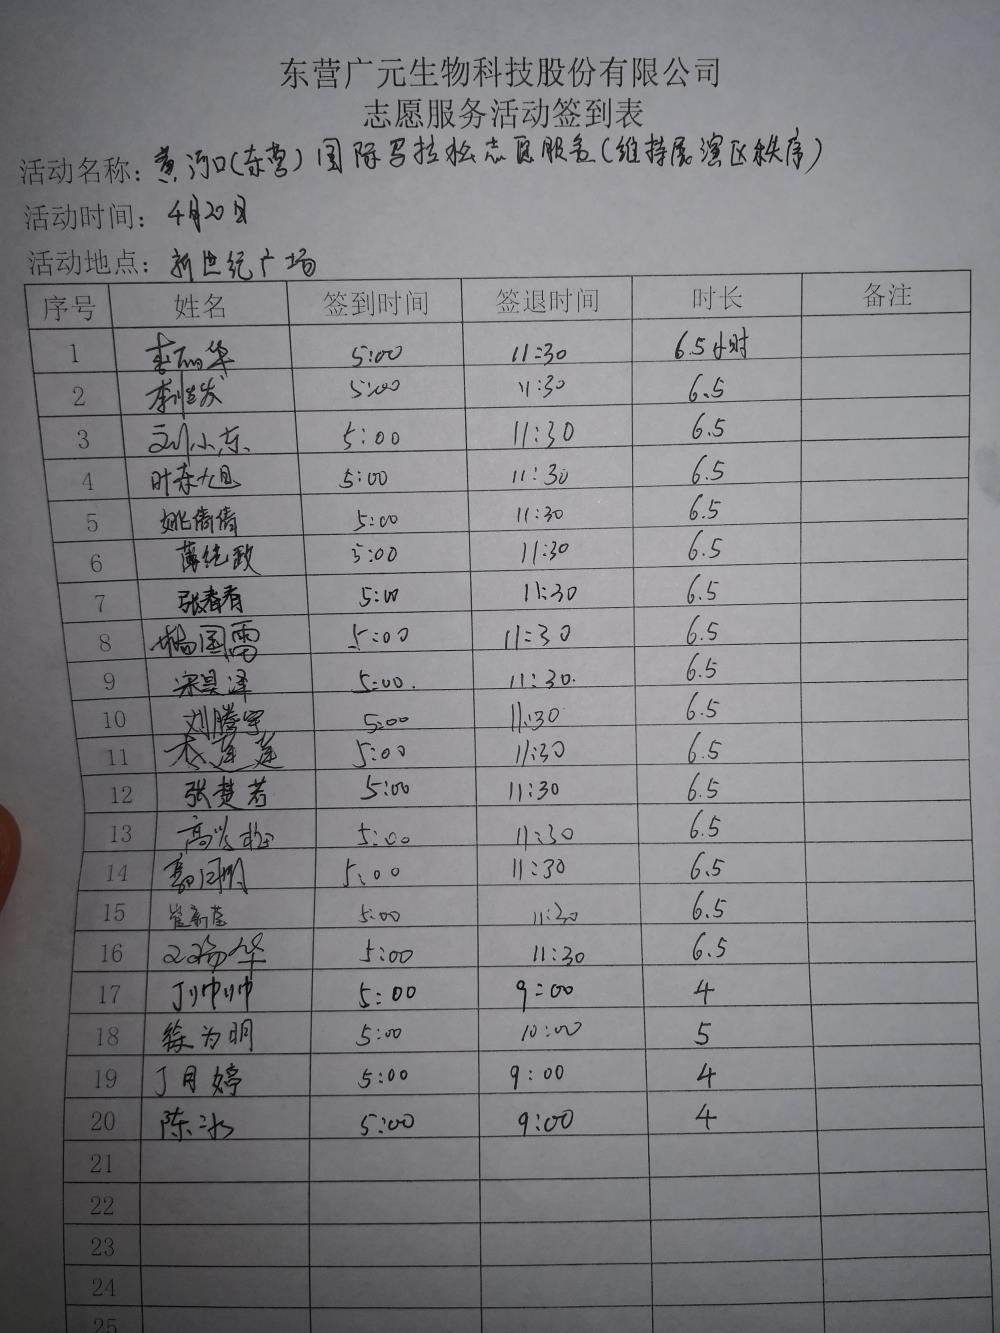 东营广元生物科技股份有限公司
志愿服务活动签到表
活动名称：黄河口(东营)国际马拉松志愿服务(维持展演区秩序)
活动时间：4月20日
活动地点：新世纪广场
序号 姓名 签到时间 签退时间 时长 备注
1 李丽华 5:00 11:30 6.5小时
2 5:00 11:30 6.5
3 刘小东 5:00 11:30 6.5
4 5:00 11:30 6.5
5 姚倩倩 5:00 11:30 6.5
6 薄纯政 5:00 11:30 6.5
7 张春香 5:00 11:30 6.5
8 杨国雷 5:00 11:30 6.5
9 宋昊泽 5:00. 11:30. 6.5
10 刘腾宇 5:00 11:30 6.5
11 李莲莲 5:00 11:30 6.5
12 张楚若 5:00 11:30 6.5
13 5:00 11:30 6.5
14 5:00 11:30 6.5
15 5:00 11:30 6.5
16 5:00 11:30 6.5
17 丁帅帅 5:00 9:00 4
18 徐为明 5:00 10:00 5
19 丁月婷 5:00 9:00 4
20 陈冰 5:00 9:00 4
21
22
23
24
25